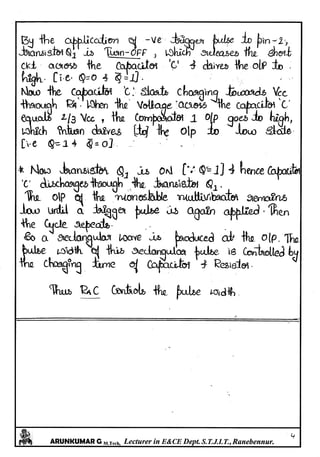 By the application of -ve trigger pulse to pin-2,
transistor Q1 is Turn-OFF, which releases the short
ckt across the Capacitor 'C' & drives the O/P to
high. [i.e Q=0 & Q̅=1].
Now the Capacitor 'C' Starts charging towards Vcc
through RA. When the Voltage across the capacitor 'C'
equals 2/3 Vcc, the Comparator 1 O/P goes to high,
which inturn drives [to] the O/P to low State
[i.e Q=1 & Q̅=0].
* Now transistor Q1 is ON [∵ Q=1] & hence Capacitor
'C' discharges through the transistor Q1.
The O/P of the monostable multivibrator remains
low until a trigger pulse is again applied. Then
the Cycle repeats.
So a rectangular wave is produced at the O/P. The
pulse width of this rectangular pulse is controlled by
the charging time of Capacitor & Resistor.
Thus RAC Controls the pulse width.
4
ARUNKUMAR G M.Tech, Lecturer in E&CE Dept. S.T.J.I.T., Ranebennur.